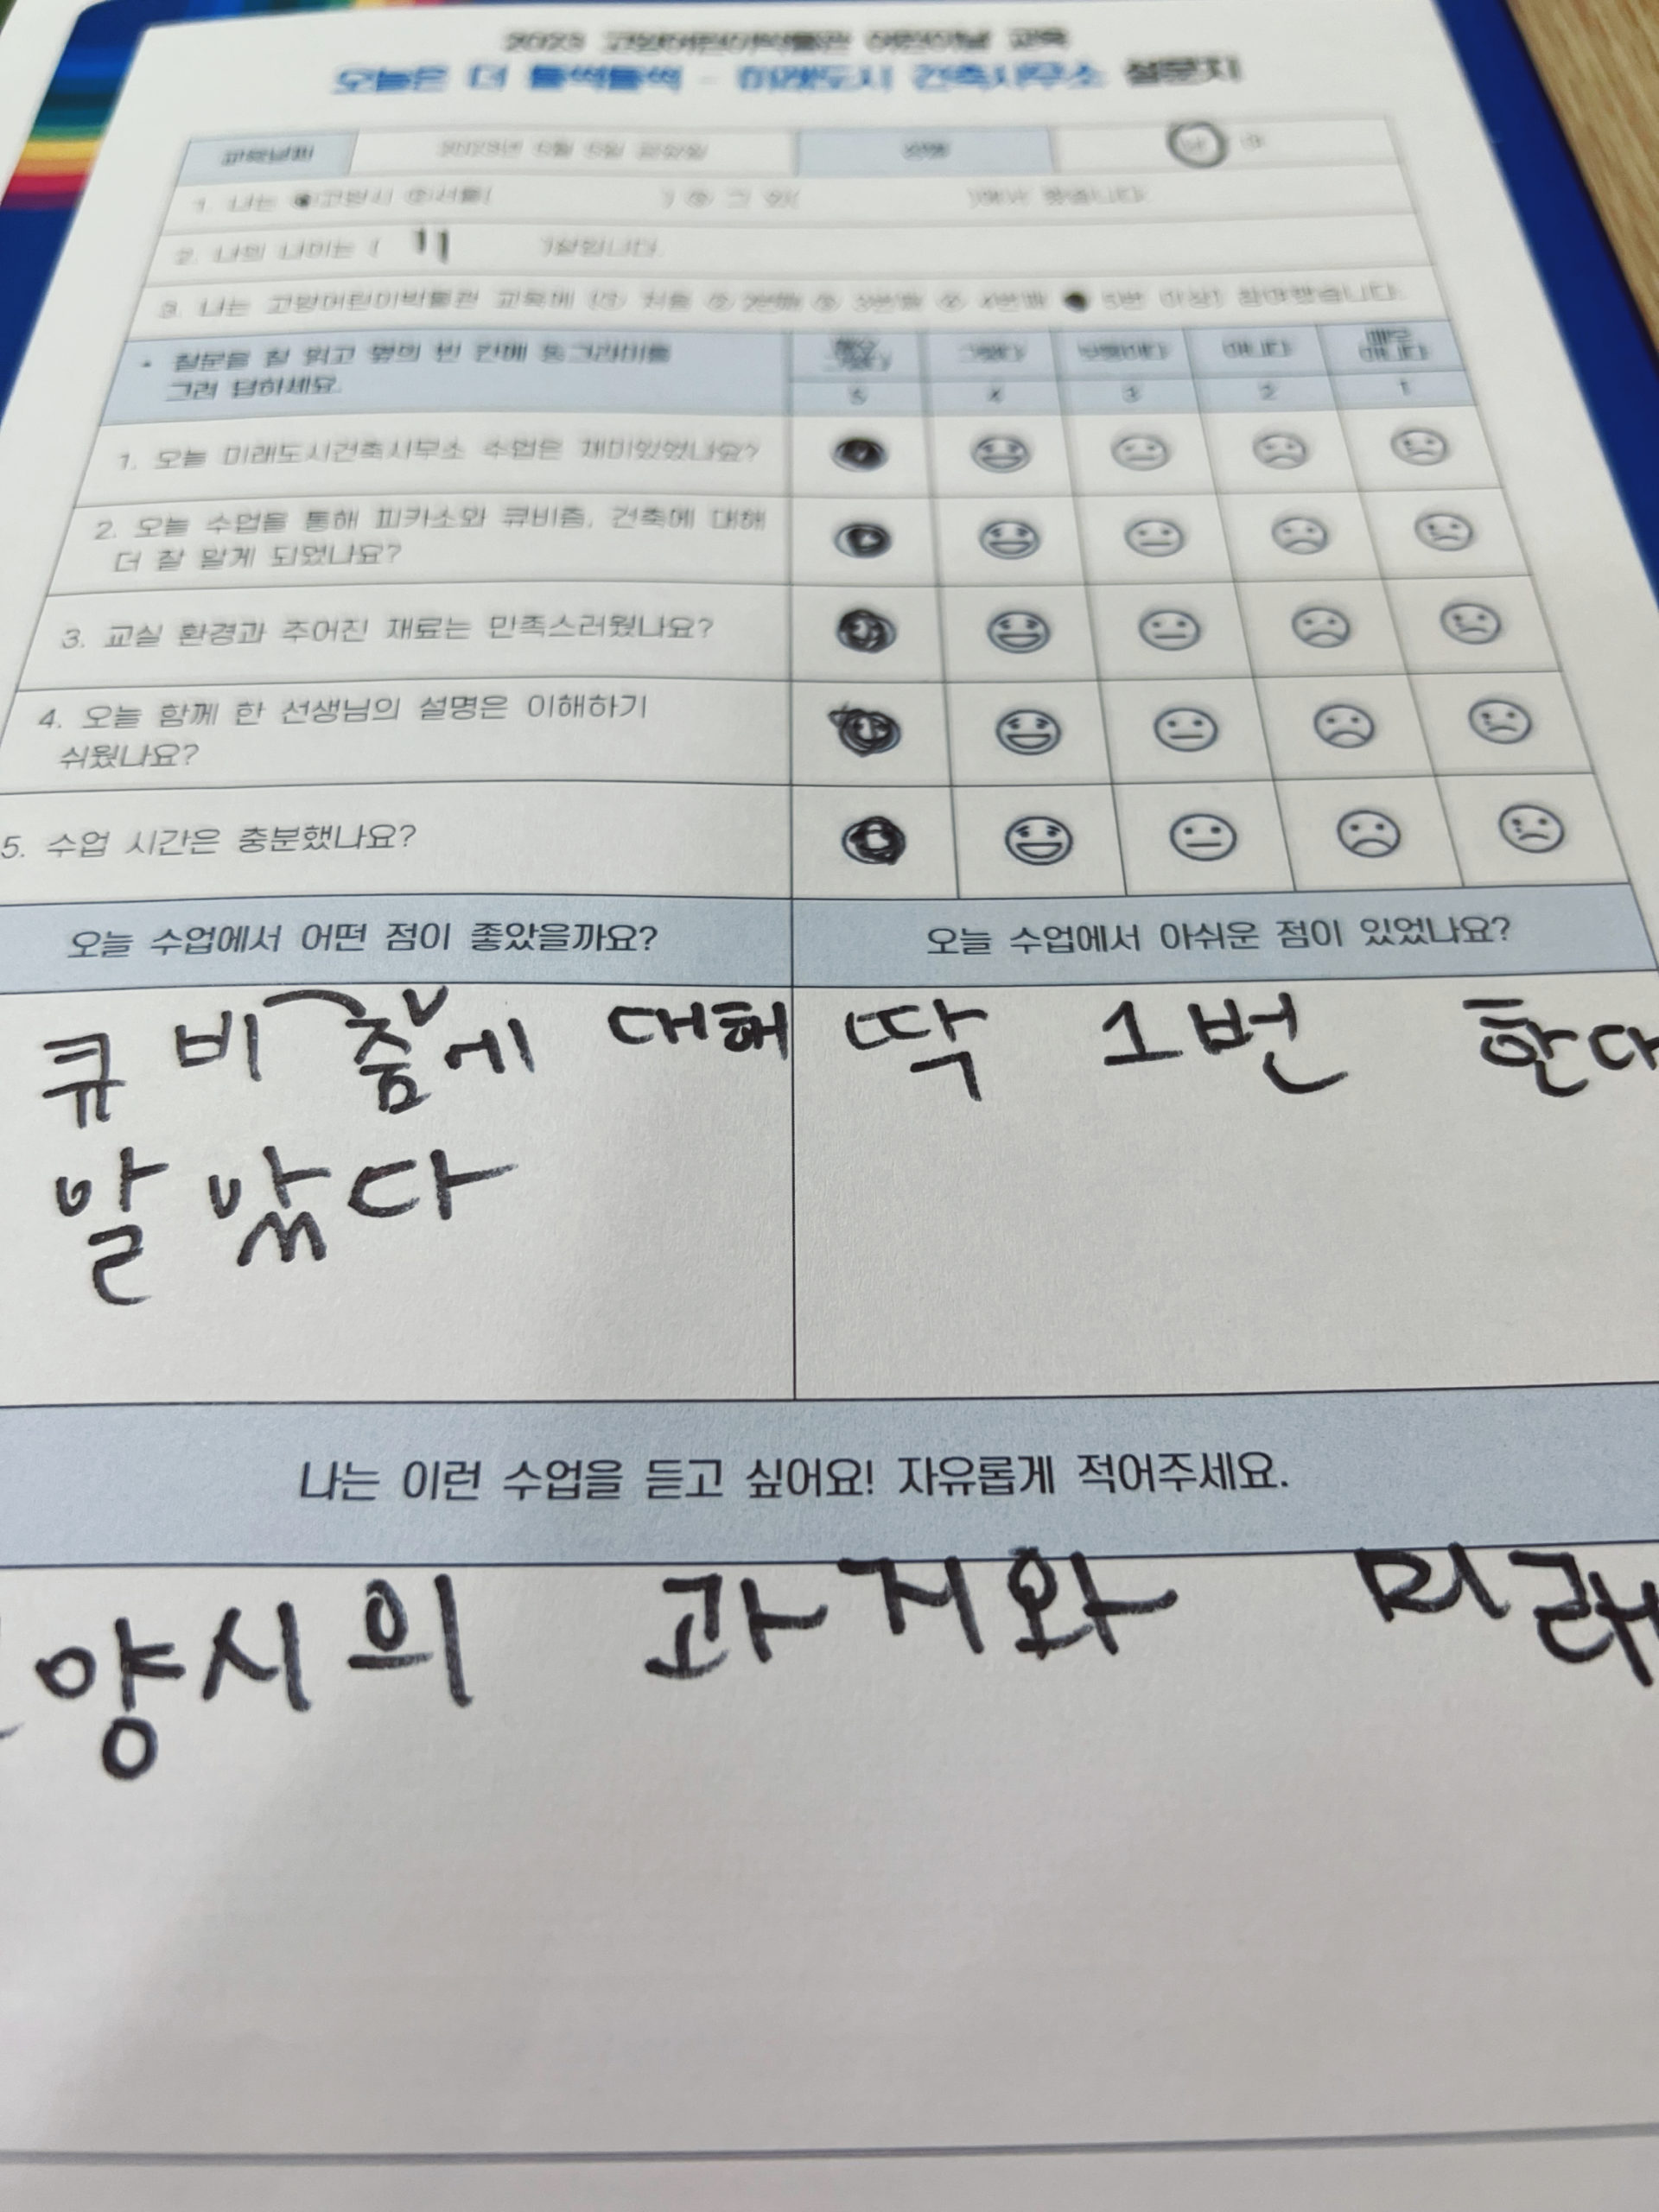 2023 고양어린이박물관 어린이날 교육
오늘은 더 들썩들썩 - 미래도시 건축사무소 설문지
교육날짜 2023년 5월 5일 금요일 성별
1. 나는 ①고양시 ②서울( ) ③ 그 외( )에서 왔습니다.
2. 나의 나이는 ( 11 )살입니다.
3. 나는 고양어린이박물관 교육에 (① 처음 ② 2번째 ③ 3번째 ④ 4번째 5번 이상) 참여했습니다.
* 질문을 잘 읽고 옆의 빈 칸에 동그라미를 매우 그렇다 그렇다 보통이다 아니다 매우 아니다
그려 답하세요. 5 4 3 2 1
1. 오늘 미래도시건축사무소 수업은 재미있었나요?
2. 오늘 수업을 통해 피카소와 큐비즘, 건축에 대해
더 잘 알게 되었나요?
3. 교실 환경과 주어진 재료는 만족스러웠나요?
4. 오늘 함께 한 선생님의 설명은 이해하기
쉬웠나요?
5. 수업 시간은 충분했나요?
오늘 수업에서 어떤 점이 좋았을까요? 오늘 수업에서 아쉬운 점이 있었나요?
큐비줌에 대해 딱 1번 한다
알았다
나는 이런 수업을 듣고 싶어요! 자유롭게 적어주세요.
양시의 과거와 미래